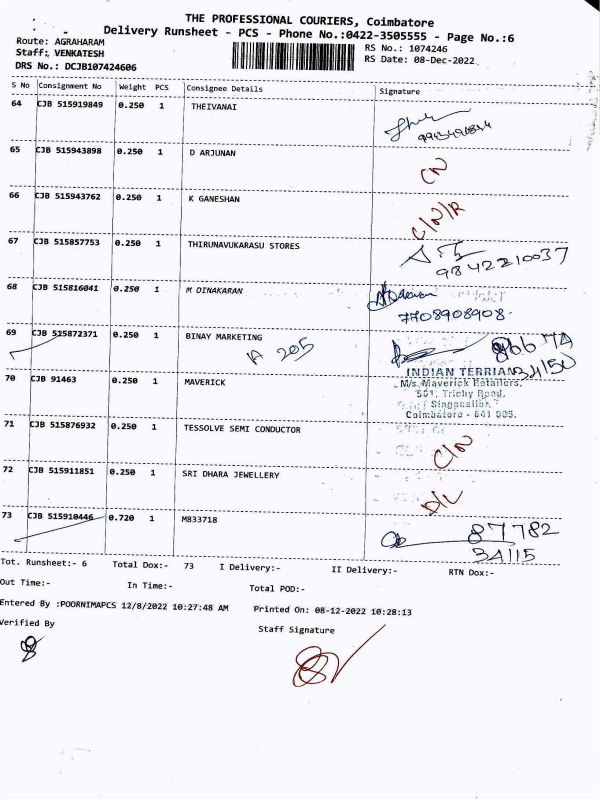 THE PROFESSIONAL COURIERS, Coimbatore
Delivery Runsheet - PCS - Phone No.:0422-3505555 - Page No.:6
Route: AGRAHARAM
RS No.: 1074246
Staff: VENKATESH
RS Date: 08-Dec-2022
DRS No.: DCJB107424606
S No Consignment No Weight PCS Consignee Details Signature
64 CJB 515919849 0.250 1 THEIVANAI
65 CJB 515943898 0.250 1 D ARJUNAN CN
66 CJB 515943762 0.250 1 K GANESHAN C/N/R
67 CJB 515857753 0.250 1 THIRUNAVUKARASU STORES
9842210037
68 CJB 515816041 0.250 1 M DINAKARAN
7708908908
69 CJB 515872371 0.250 1 BINAY MARKETING
205
34150
70 CJB 91463 0.250 1 MAVERICK
INDIAN TERRIAN
M/s. Maverick Retailers,
501, Trichy Road,
Singanallur,
Coimbatore - 641 005.
71 CJB 515876932 0.250 1 TESSOLVE SEMI CONDUCTOR C/N
72 CJB 515911851 0.250 1 SRI DHARA JEWELLERY D/L
73 CJB 515910446 0.720 1 M833718
87782
34115
Tot. Runsheet:- 6 Total Dox:- 73 I Delivery:- II Delivery:- RTN Dox:-
Out Time:- In Time:- Total POD:-
Entered By :POORNIMAPCS 12/8/2022 10:27:48 AM Printed On: 08-12-2022 10:28:13
Verified By Staff Signature